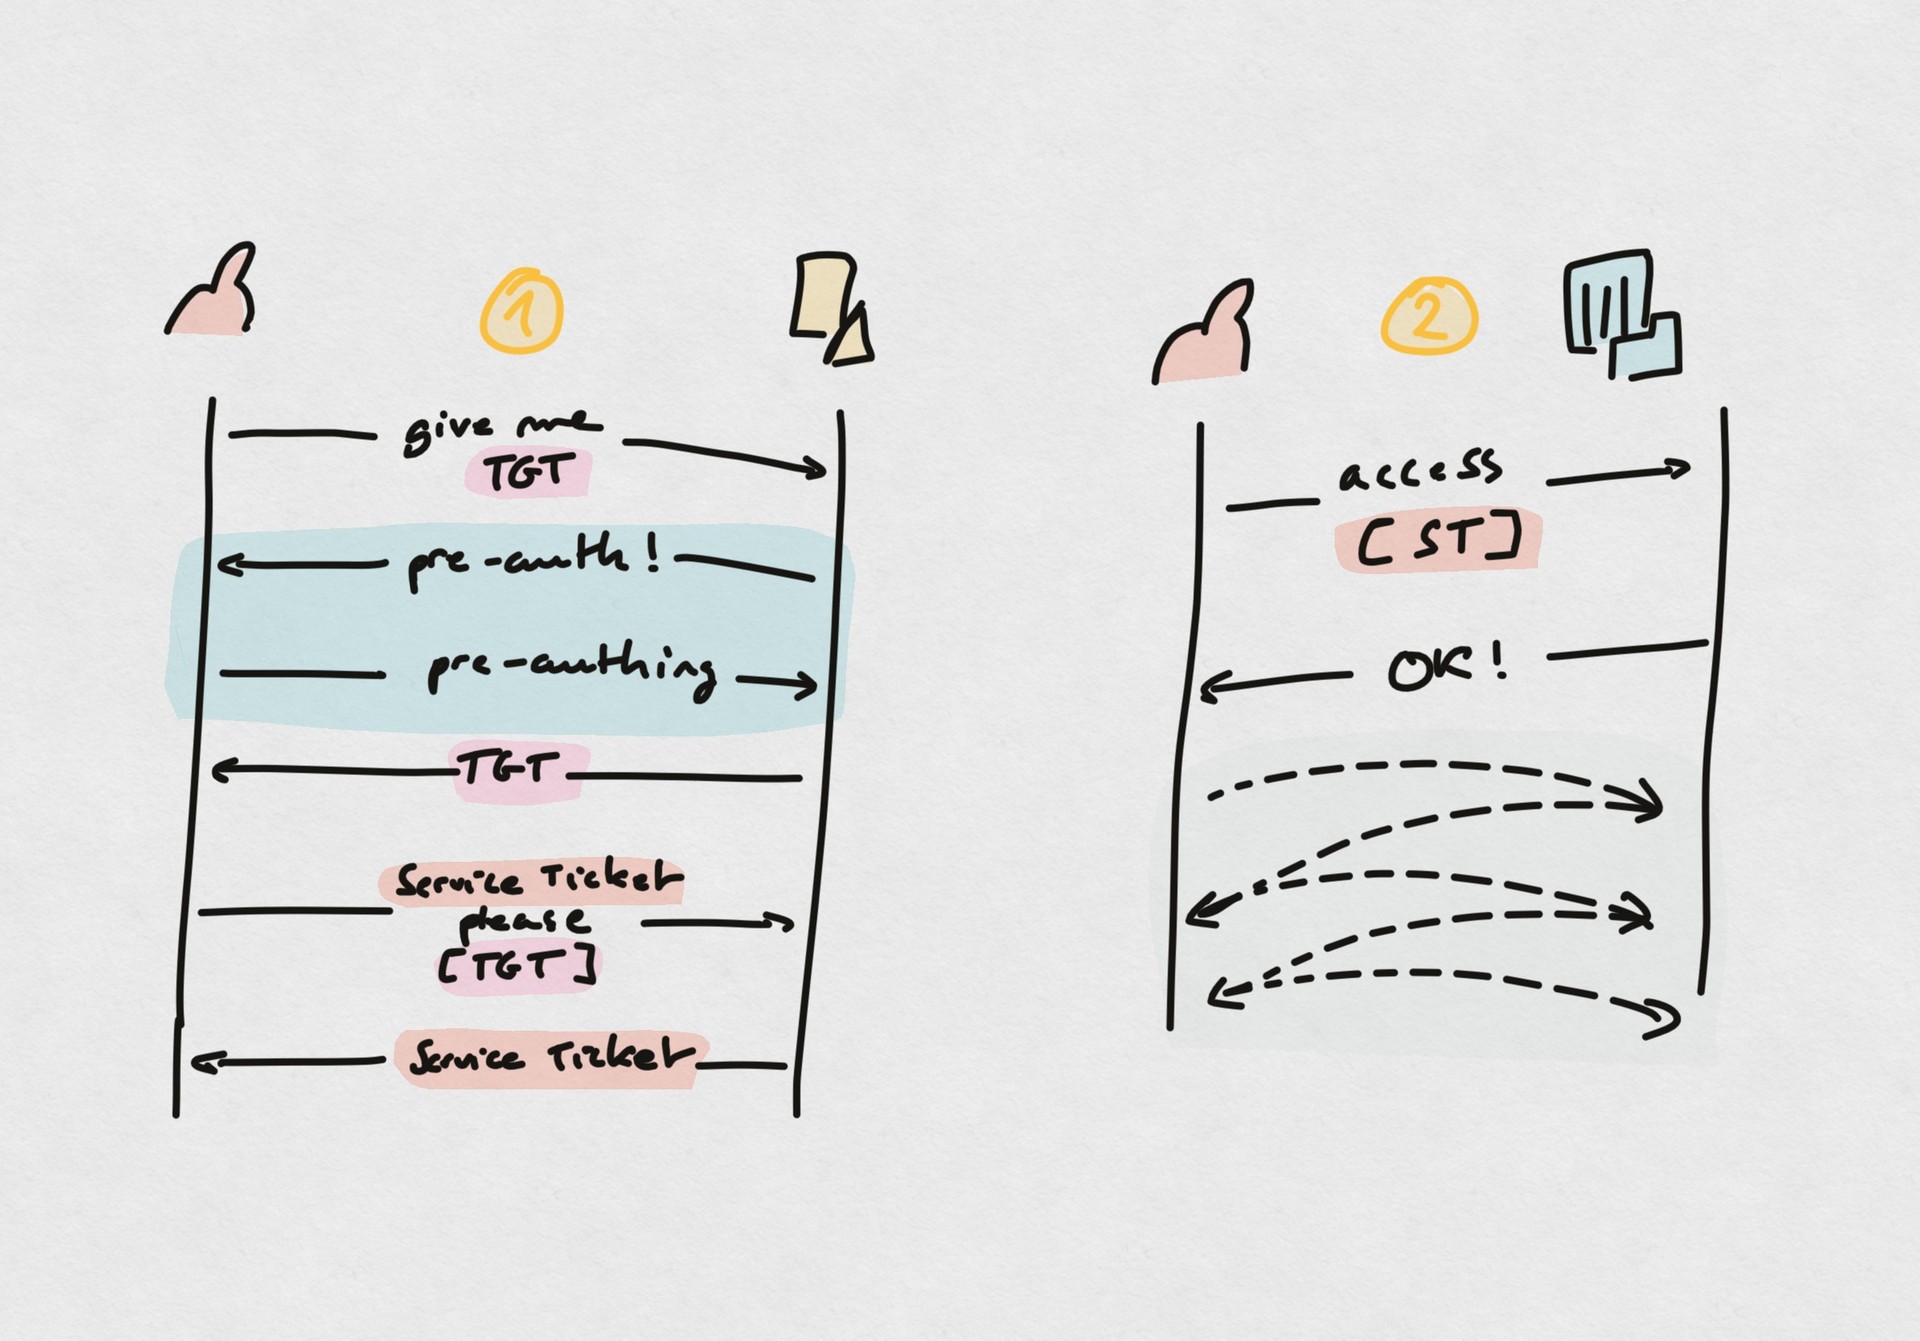 1
give me
TGT
pre-auth!
pre-authing
TGT
Service Ticket
please
[TGT]
Service Ticket
2
access
[ST]
OK!